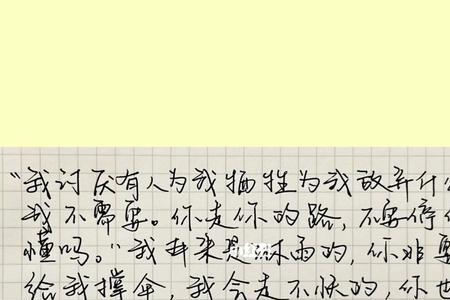 “我讨厌有人为我牺牲为我放弃什
我不需要。你走你的路，不要停
懂吗。”我本来是淋雨的，你非要
给我撑伞，我会走不快的，你也